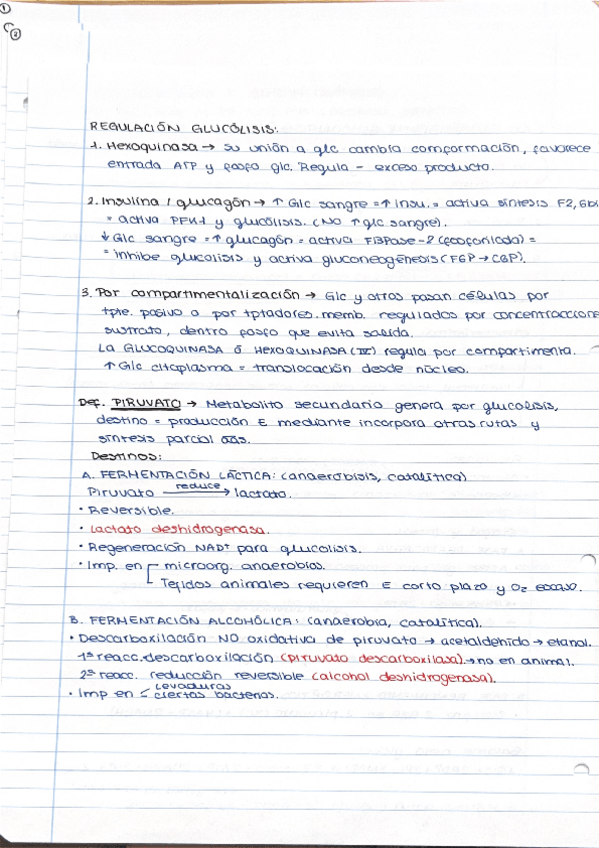 1
2
REGULACIÓN GLUCÓLISIS:
1. Hexoquinasa → su unión a glc cambia conformación, favorece
entrada ATP y fosfo glc. Regula - exceso producto.
2. Insulina / glucagón → ↑ Glc sangre = ↑ insu. = activa síntesis F2,6bi
= activa PFK-1 y glucólisis. (NO ↑ glc sangre).
↓ Glc sangre = ↑ glucagón = activa FBPase-2 (fosforilada) =
= inhibe glucolisis y activa gluconeogénesis (F6P → G6P).
3. Por compartimentalización → Glc y otros pasan células por
tpte. pasivo a por tptadores. memb. regulados por concentracione
sustrato, dentro fosfo que evita salida.
La GLUCOQUINASA ó HEXOQUINASA (IV) regula por compartimenta.
↑ Glc citoplasma = translocación desde núcleo.
Def. PIRUVATO → Metabolito secundario genera por glucolisis,
destino = producción E mediante incorpora otras rutas y
síntesis parcial aas.
Destinos:
A. FERMENTACIÓN LÁCTICA: (anaerobisis, catalítica)
Piruvato reduce → lactato.
• Reversible.
• Lactato deshidrogenasa.
• Regeneración NAD+ para glucolisis.
• Imp. en microorg. anaerobios.
Tejidos animales requieren E corto plazo y O2 escaso.
B. FERMENTACIÓN ALCOHÓLICA: (anaerobia, catalítica).
• Descarboxilación NO oxidativa de piruvato → acetaldehído → etanol.
1ª reacc. descarboxilación (piruvato descarboxilasa). → no en animal.
2ª reacc. reducción reversible (alcohol deshidrogenasa).
• Imp en < levaduras
ciertas bacterias.